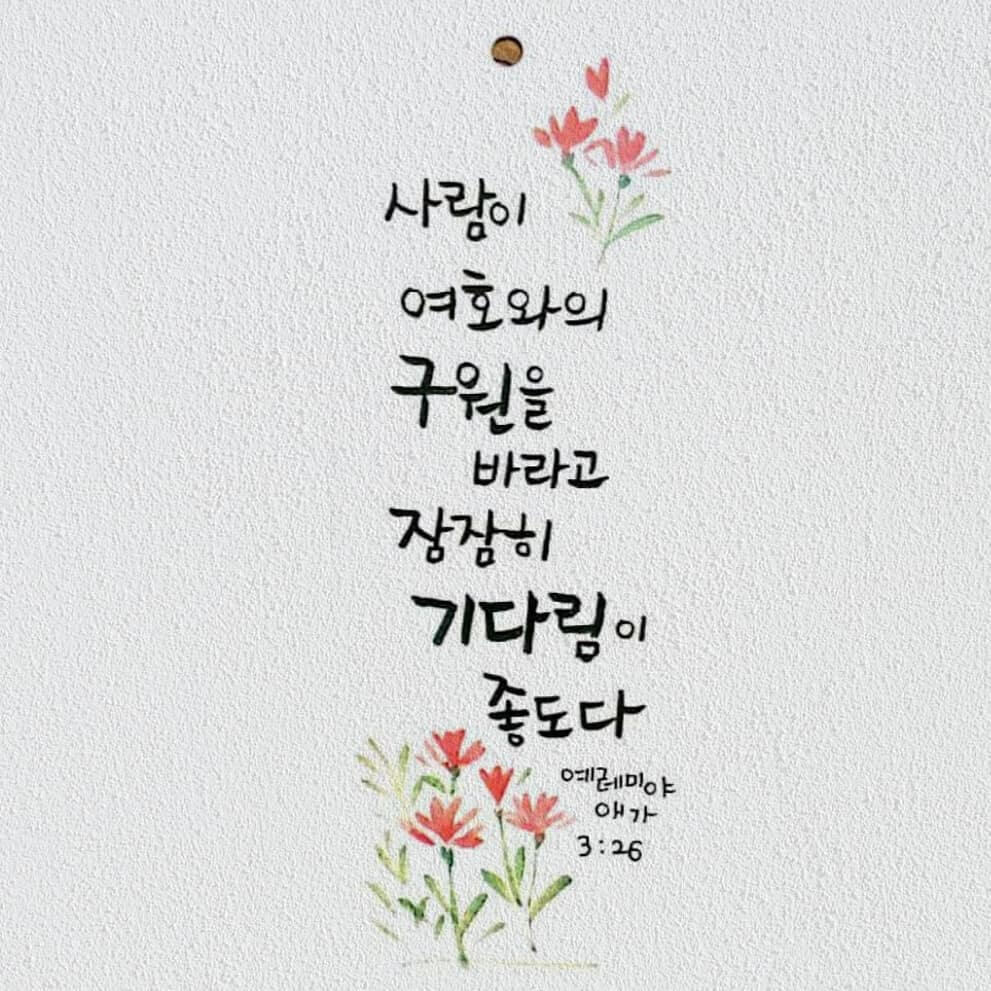 사람이
여호와의
구원을
바라고
잠잠히
기다림이
좋도다
예레미야
애가
3:26